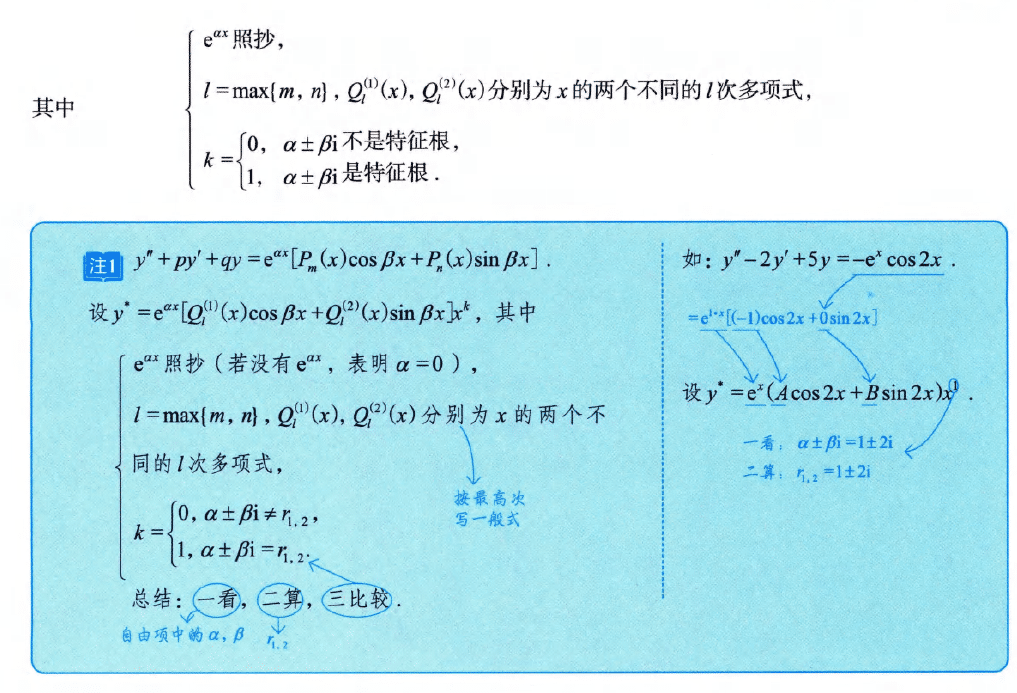 其中
e^{αx}照抄，
l=max{m, n}，Q_l^{(1)}(x)，Q_l^{(2)}(x)分别为x的两个不同的l次多项式，
k={0， α±βi不是特征根，
1， α±βi是特征根．
注1 y″+py′+qy=e^{αx}[P_m(x)cos βx+P_n(x)sin βx]．
设y*=e^{αx}[Q_l^{(1)}(x)cos βx+Q_l^{(2)}(x)sin βx]x^k，其中
e^{αx}照抄（若没有e^{αx}，表明α=0），
l=max{m, n}，Q_l^{(1)}(x)，Q_l^{(2)}(x)分别为x的两个不
同的l次多项式，
按最高次
写一般式
k={0, α±βi≠r_{1,2}，
1, α±βi=r_{1,2}．
总结：一看，二算，三比较．
自由项中的α，β r_{1,2}
如：y″−2y′+5y=−e^x cos 2x．
=e^{1·x}[(−1)cos2x+0sin2x]
设y*=e^x(Acos 2x+Bsin 2x)x^1．
一看：α±βi=1±2i
二算：r_{1,2}=1±2i